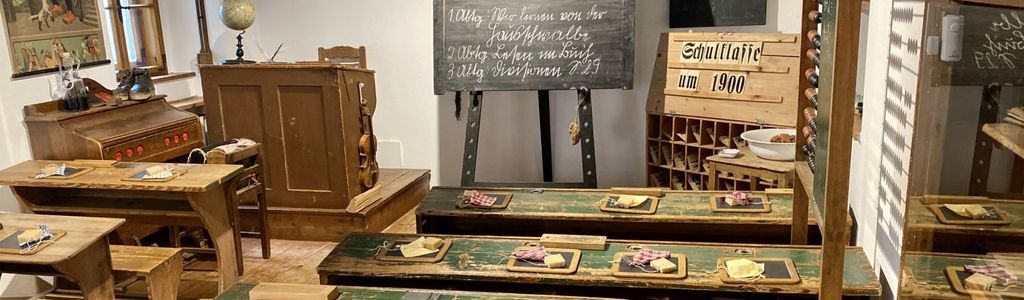 1. Abtg. Wir lernen von der
Hausschwalbe
2. Abtg. Lesen im Buch
3. Abtg. Divisionen S. 29
Schulklasse
um 1900